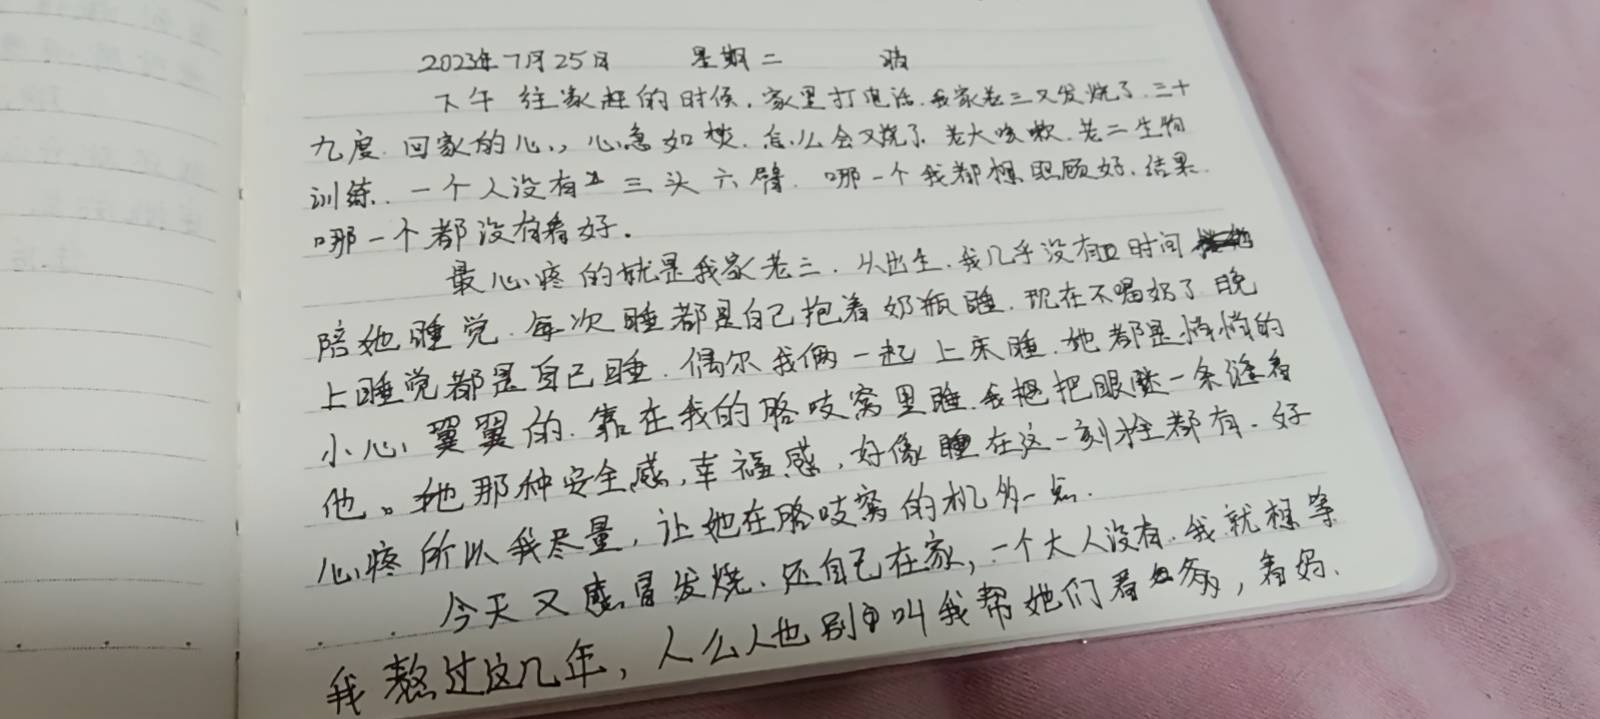 2023年7月25日 星期二 晴
下午往家赶的时候.家里打电话.我家老三又发烧了.三十
九度.回家的心,,心急如焚.怎么会又烧了.老大咳嗽.老二生物
训练.一个人没有三头六臂.哪一个我都想照顾好.结果.
哪一个都没有看好.
最心疼的就是我家老三.从出生.我几乎没有时间
陪她睡觉.每次睡都是自己抱着奶瓶睡.现在不喝奶了晚
上睡觉都是自己睡.偶尔我俩一起上床睡.她都是悄悄的
小心翼翼的.靠在我的胳吱窝里睡.我把眼眯一条缝看
他。她那种安全感,幸福感,好像睡在这一刻全都有.好
心疼所以我尽量,让她在胳吱窝的机多一点.
今天又感冒发烧.还自己在家,一个大人没有.我就想等
我熬过这几年,人么人也别叫我帮她们看务,看妈.